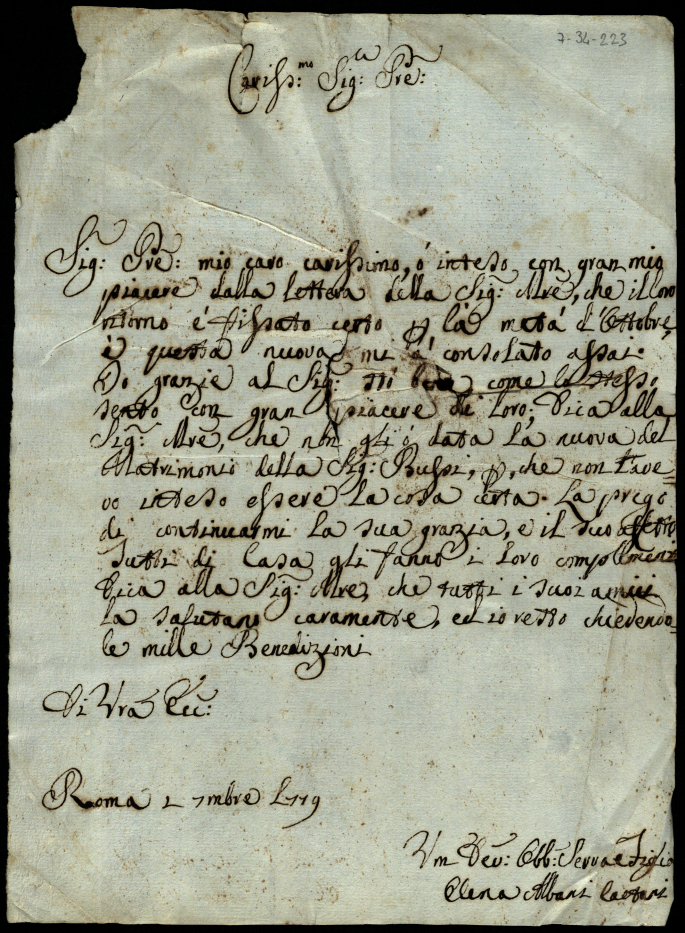 7-34-223
Cariss:mo Sig:ra Pre:
Sig: Pre: mio caro carissimo, ó inteso con gran mio
piacere dalla lettera della Sig: Mre, che il loro
ritorno é fissato certo p la metá d'Ottobre,
é questa nuova mi á consolato assai.
Do grazie al Sig: come lo stesso
sento con gran piacere di Loro; Dica alla
Sig: Mre, che non gli ó data la nuova del
Matrimonio della Sig: Bussi, p, che non l'ave-
vo inteso essere la cosa certa. La prego
di continuarmi la sua grazia, e il suo affetto
Tutti di Casa gli fanno i loro complimenti
Dica alla Sig: Mre, che tutti i suoi amici
la salutano caramente, ed io resto chiedendo-
le mille Benedizioni
Di Vra Ecc:
Roma 2 7mbre 1719
Vm Dev: Obb: Serva e Figlia
Elena Albani